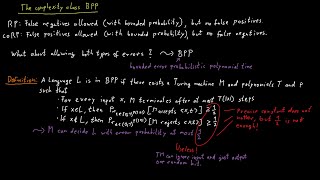 The complexity class BPP
RP: False negatives allowed (with bounded probability), but no false positives.
coRP: False positives allowed (with bounded probability), but no false negatives.
What about allowing both types of errors? → BPP
bounded error probabilistic polynomial time
Definition: A language L is in BPP if there exists a Turing machine M and polynomials T and p
such that
• For every input x, M terminates after at most T(|x|) steps
• If x∈L, then
[M accepts <x,r>] ≥
• If x∉L, then
[M rejects <x,r>] ≥
→ M can decide L with error probability at most
Precise constant does not
matter, but 1/2 is not
enough!
Useless!
TM can ignore input and just output
one random bit.